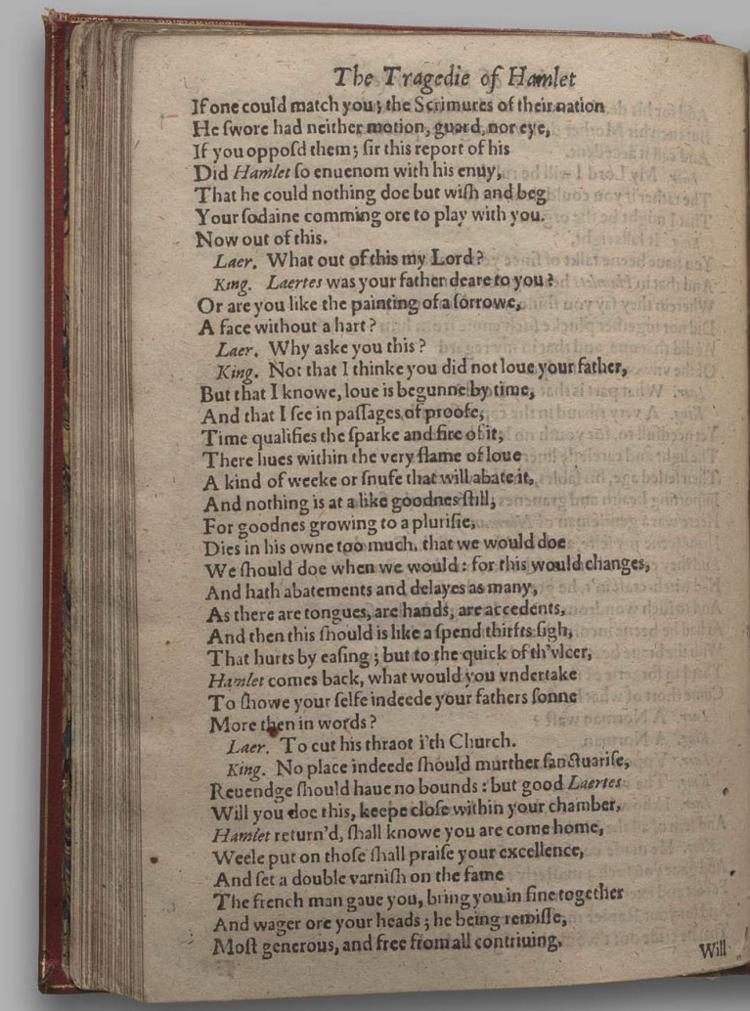 The Tragedie of Hamlet
If one could match you; the Scrimures of their nation
He ſwore had neither motion, guard, nor eye,
If you oppoſd them; ſir this report of his
Did Hamlet ſo enuenom with his enuy,
That he could nothing doe but wiſh and beg
Your ſodaine comming ore to play with you.
Now out of this.
Laer. What out of this my Lord?
King. Laertes was your father deare to you?
Or are you like the painting of a ſorrowe,
A face without a hart?
Laer. Why aske you this?
King. Not that I thinke you did not loue your father,
But that I knowe, loue is begunne by time,
And that I ſee in paſſages of proofe,
Time qualifies the ſparke and fire of it,
There liues within the very flame of loue
A kind of weeke or ſnufe that will abate it,
And nothing is at a like goodnes ſtill,
For goodnes growing to a pluriſie,
Dies in his owne too much, that we would doe
We ſhould doe when we would: for this would changes,
And hath abatements and delayes as many,
As there are tongues, are hands, are accedents,
And then this ſhould is like a ſpend thirfts ſigh,
That hurts by eaſing; but to the quick of th'vlcer,
Hamlet comes back, what would you vndertake
To ſhowe your ſelfe indeede your fathers ſonne
More then in words?
Laer. To cut his thraot i'th Church.
King. No place indeede ſhould murther ſanctuariſe,
Reuendge ſhould haue no bounds: but good Laertes
Will you doe this, keepe cloſe within your chamber,
Hamlet return'd, ſhall knowe you are come home,
Weele put on thoſe ſhall praiſe your excellence,
And ſet a double varniſh on the fame
The french man gaue you, bring you in fine together
And wager ore your heads; he being remiſſe,
Moſt generous, and free from all contriuing,
Will